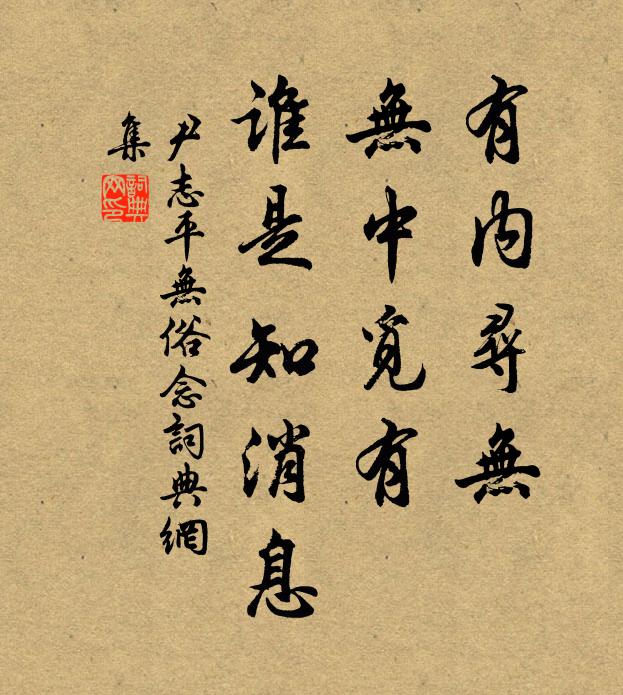 有内尋無
無中覓有
誰是知消息
尹志平無俗念詞典網
集
詞典
网印